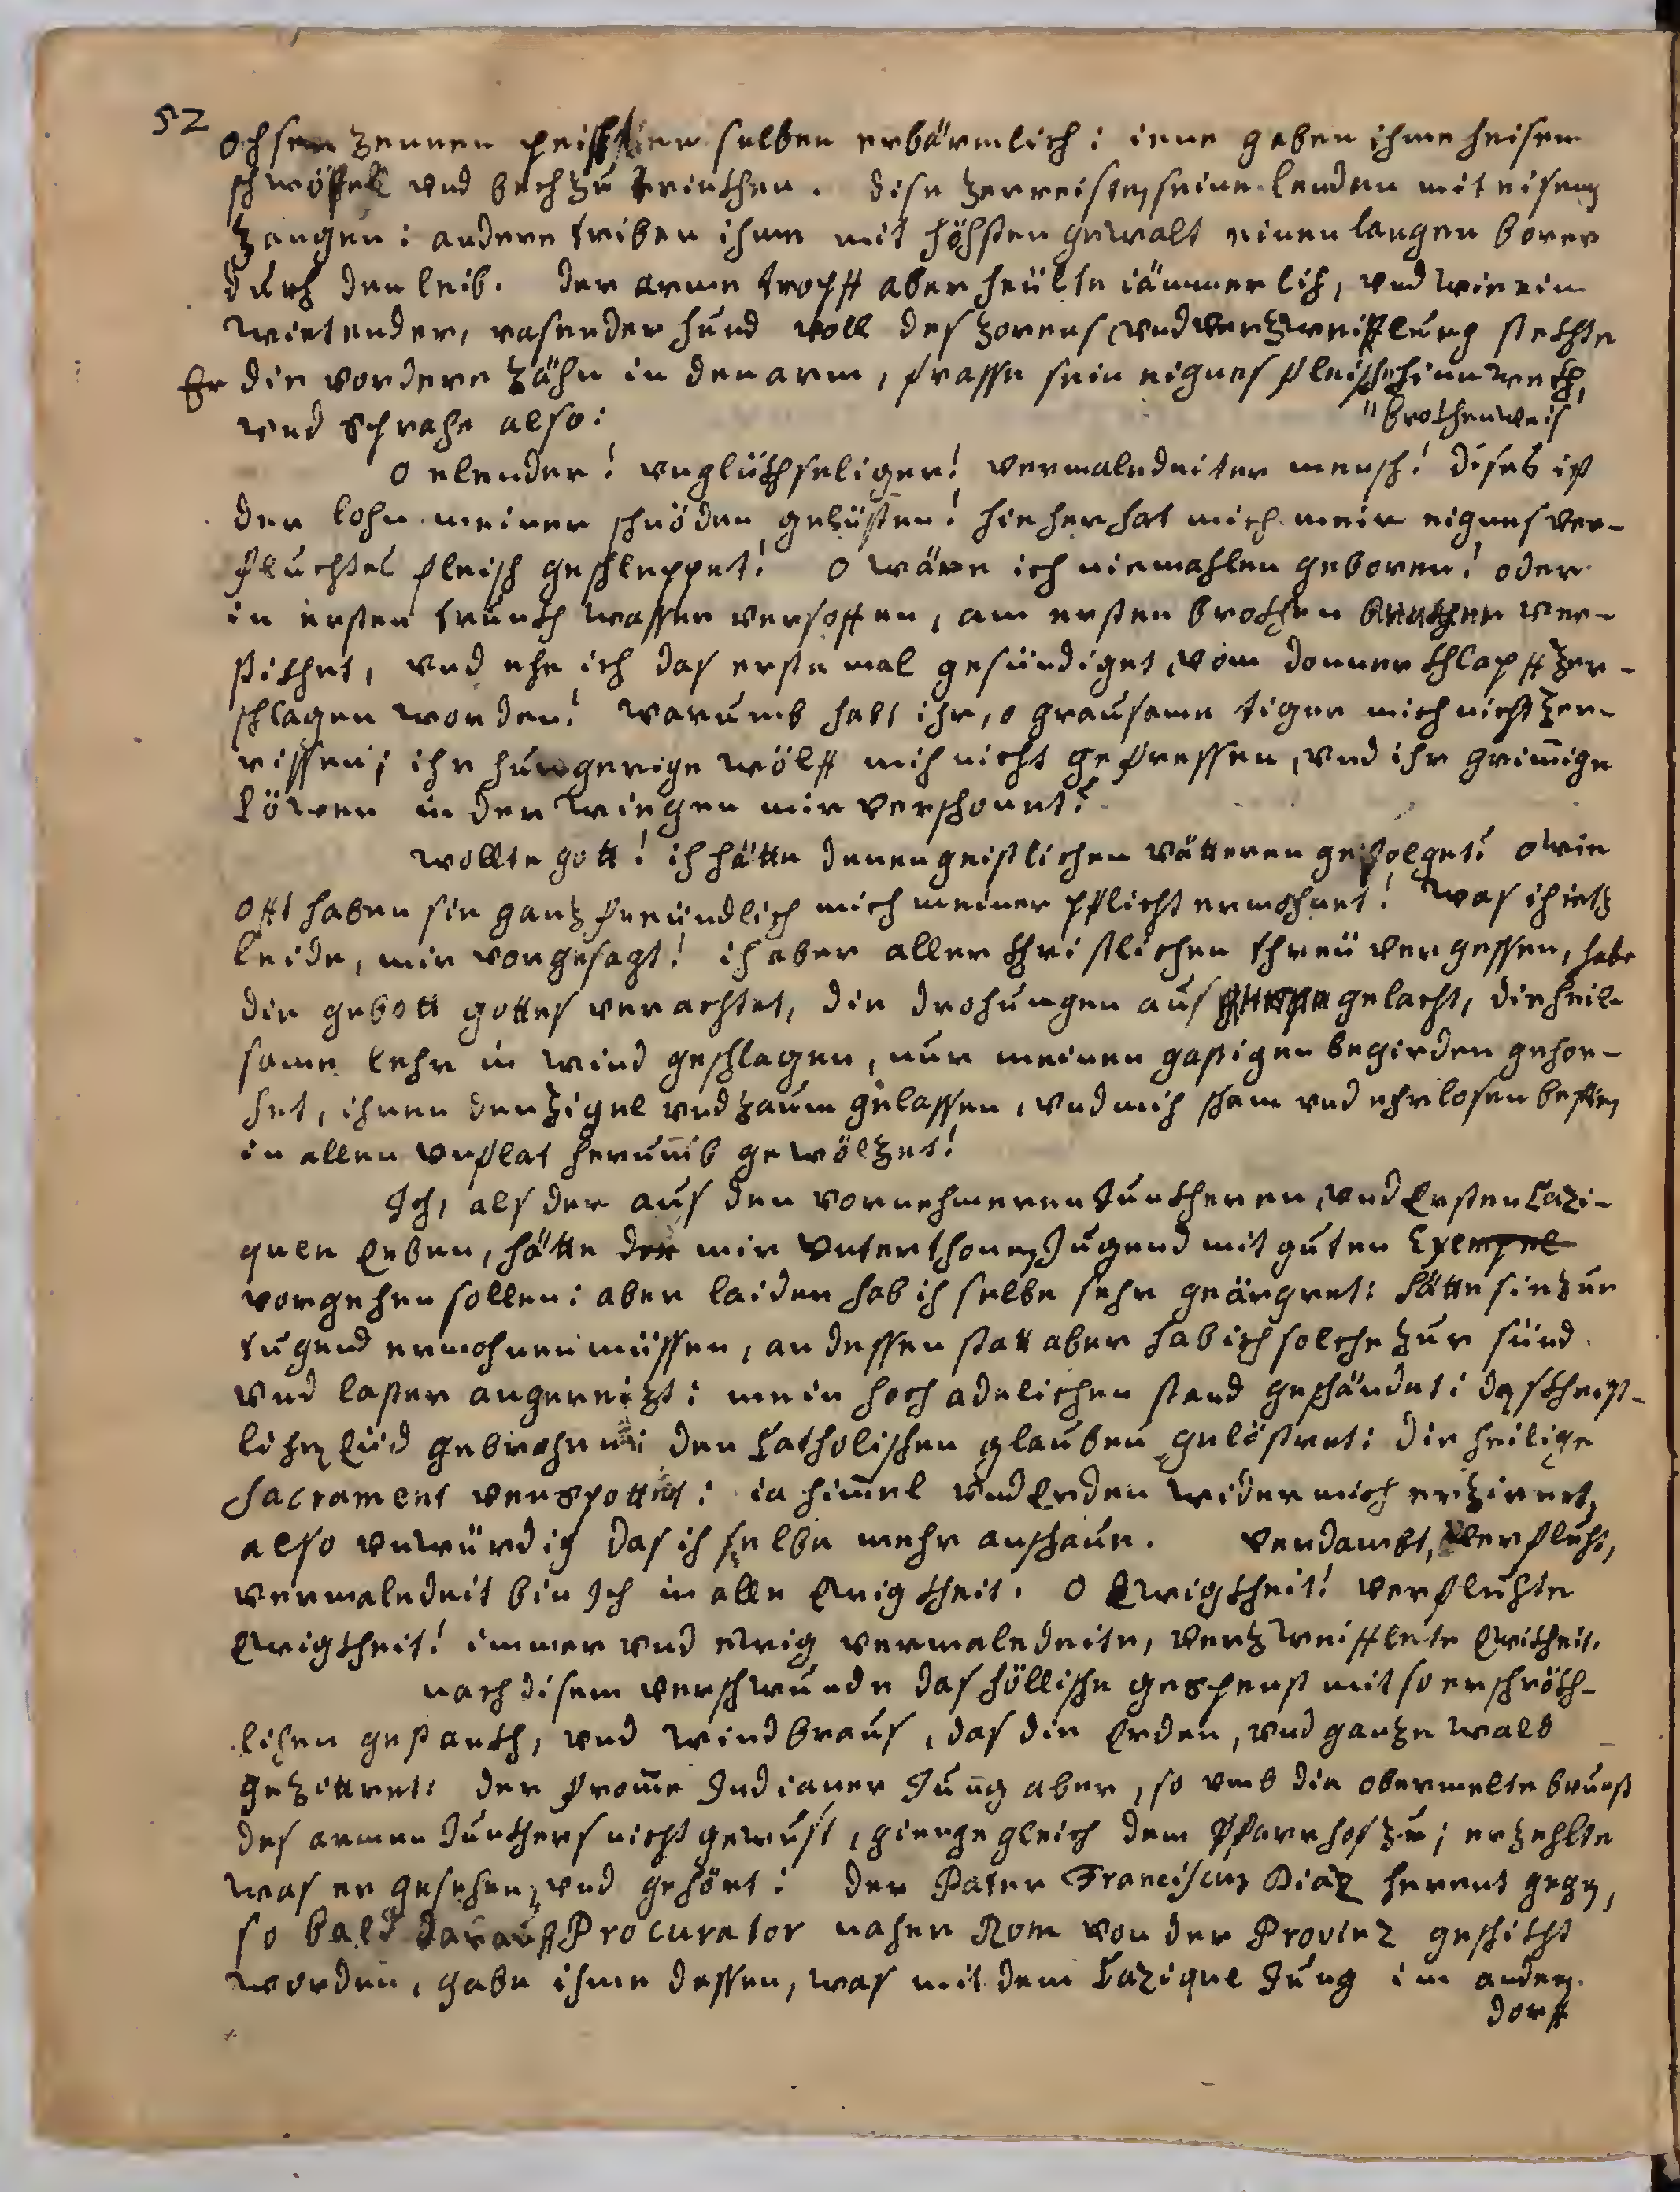 52
ochsen zennen peischten selben erbärmlich: iene geben ihme heisen
schwöfel vnd bech zu trinkhen. dise zerreisten seine lenden mit eisen
zangen: andere triben ihme mit höhsten gewalt einen langen borer
durch den leib. der arme tropff aber heülte iämmerlich, vnd wie ein
wietender, rasender hund voll des zorens, vnd verzweifflung stekhte
Er die vordere zähn in den arm, frasse sein eignes fleisch hinwekh,
"brokhenweis
vnd sprahe also:
O elender! vnglükhseliger! vermaledeiter mensch! dises ist
der lohn meiner schnöden gelüsten! hieher hat mich mein eignes ver-
fluchtes fleisch geschleppet! O wäre ich niemahlen geboren! oder
in ersten trunkh wasser versoffen, am ersten brokhen ver-
stikhet, vnd ehe ich das erste mal gesündiget, vom donnerkhlapff zer-
schlagen worden! warumb habt ihr, o grausame tiger mich nicht zer-
rissen; ihr hungerige wölff mich nicht gefressen, vnd ihr grimige
Löwen in der wiegen mir verschont?
wollte gott! ich hätte denen geistlichen vätteren gefolget! o wie
offt haben sie ganz freündlich mich meiner pflicht ermohnet! was ich ietz
leide, mir vorgesagt! ich aber aller khristlichen threü vergessen, habe
die gebott gottes verachtet, die drohungen aus gelacht, die heil-
same lehr in wind geschlagen, nur meinen gastigen begirden gehor-
het, ihnen den zigel vnd zaum gelassen, vnd mich scham vnd ehrlosen bestien
in allen vnflat herumb gewölzet!
Ich, als der aus den vornehmeren Junkheren, vnd Ersten Cazi-
quen Erben, hätte der mir vnterthonen Jugend mit guten Exempel
vorgehen sollen: aber laider hab ich selbe sehr geärgret: hätte sie zur
tugend ermohnen müssen, an dessen statt aber hab ich solche zur sünd
vnd laster angereizt: mein hoch adelichen stand geschändet: das khrist-
lichen Eüd gebrohen: den Catholischen glauben gelöstret: die heilige
Sacrament verspottet: ia himel vnd Erden wider mich erzirnet,
also vnwürdig das ich selbe mehr anschaue. verdambt, verflucht,
vermaledeit bin Ich in alle Ewigkheit. O Ewigkheit! verfluchte
Ewigkheit! immer vnd ewig vermaledeite, verzweifflete Ewikheit.
nach disem verschwunde das höllische gespenst mit so erschrökh-
lichen gestankh, vnd windbraus, das die Erden, vnd ganze wald
gezittret. der frome Indianer Jung aber, so vmb die obermelte brunst
des armen Junkhers nicht gewust, gienge gleich dem Pfarrhof zu; erzehlte
was er gesehen, vnd gehört: der Pater Franciscus Diaz herent gegen,
so bald darauff Procurator naher Rom von der Provinz geschikht
worden, gabe ihme dessen, was mit dem Cazique Jung im andern
dorff